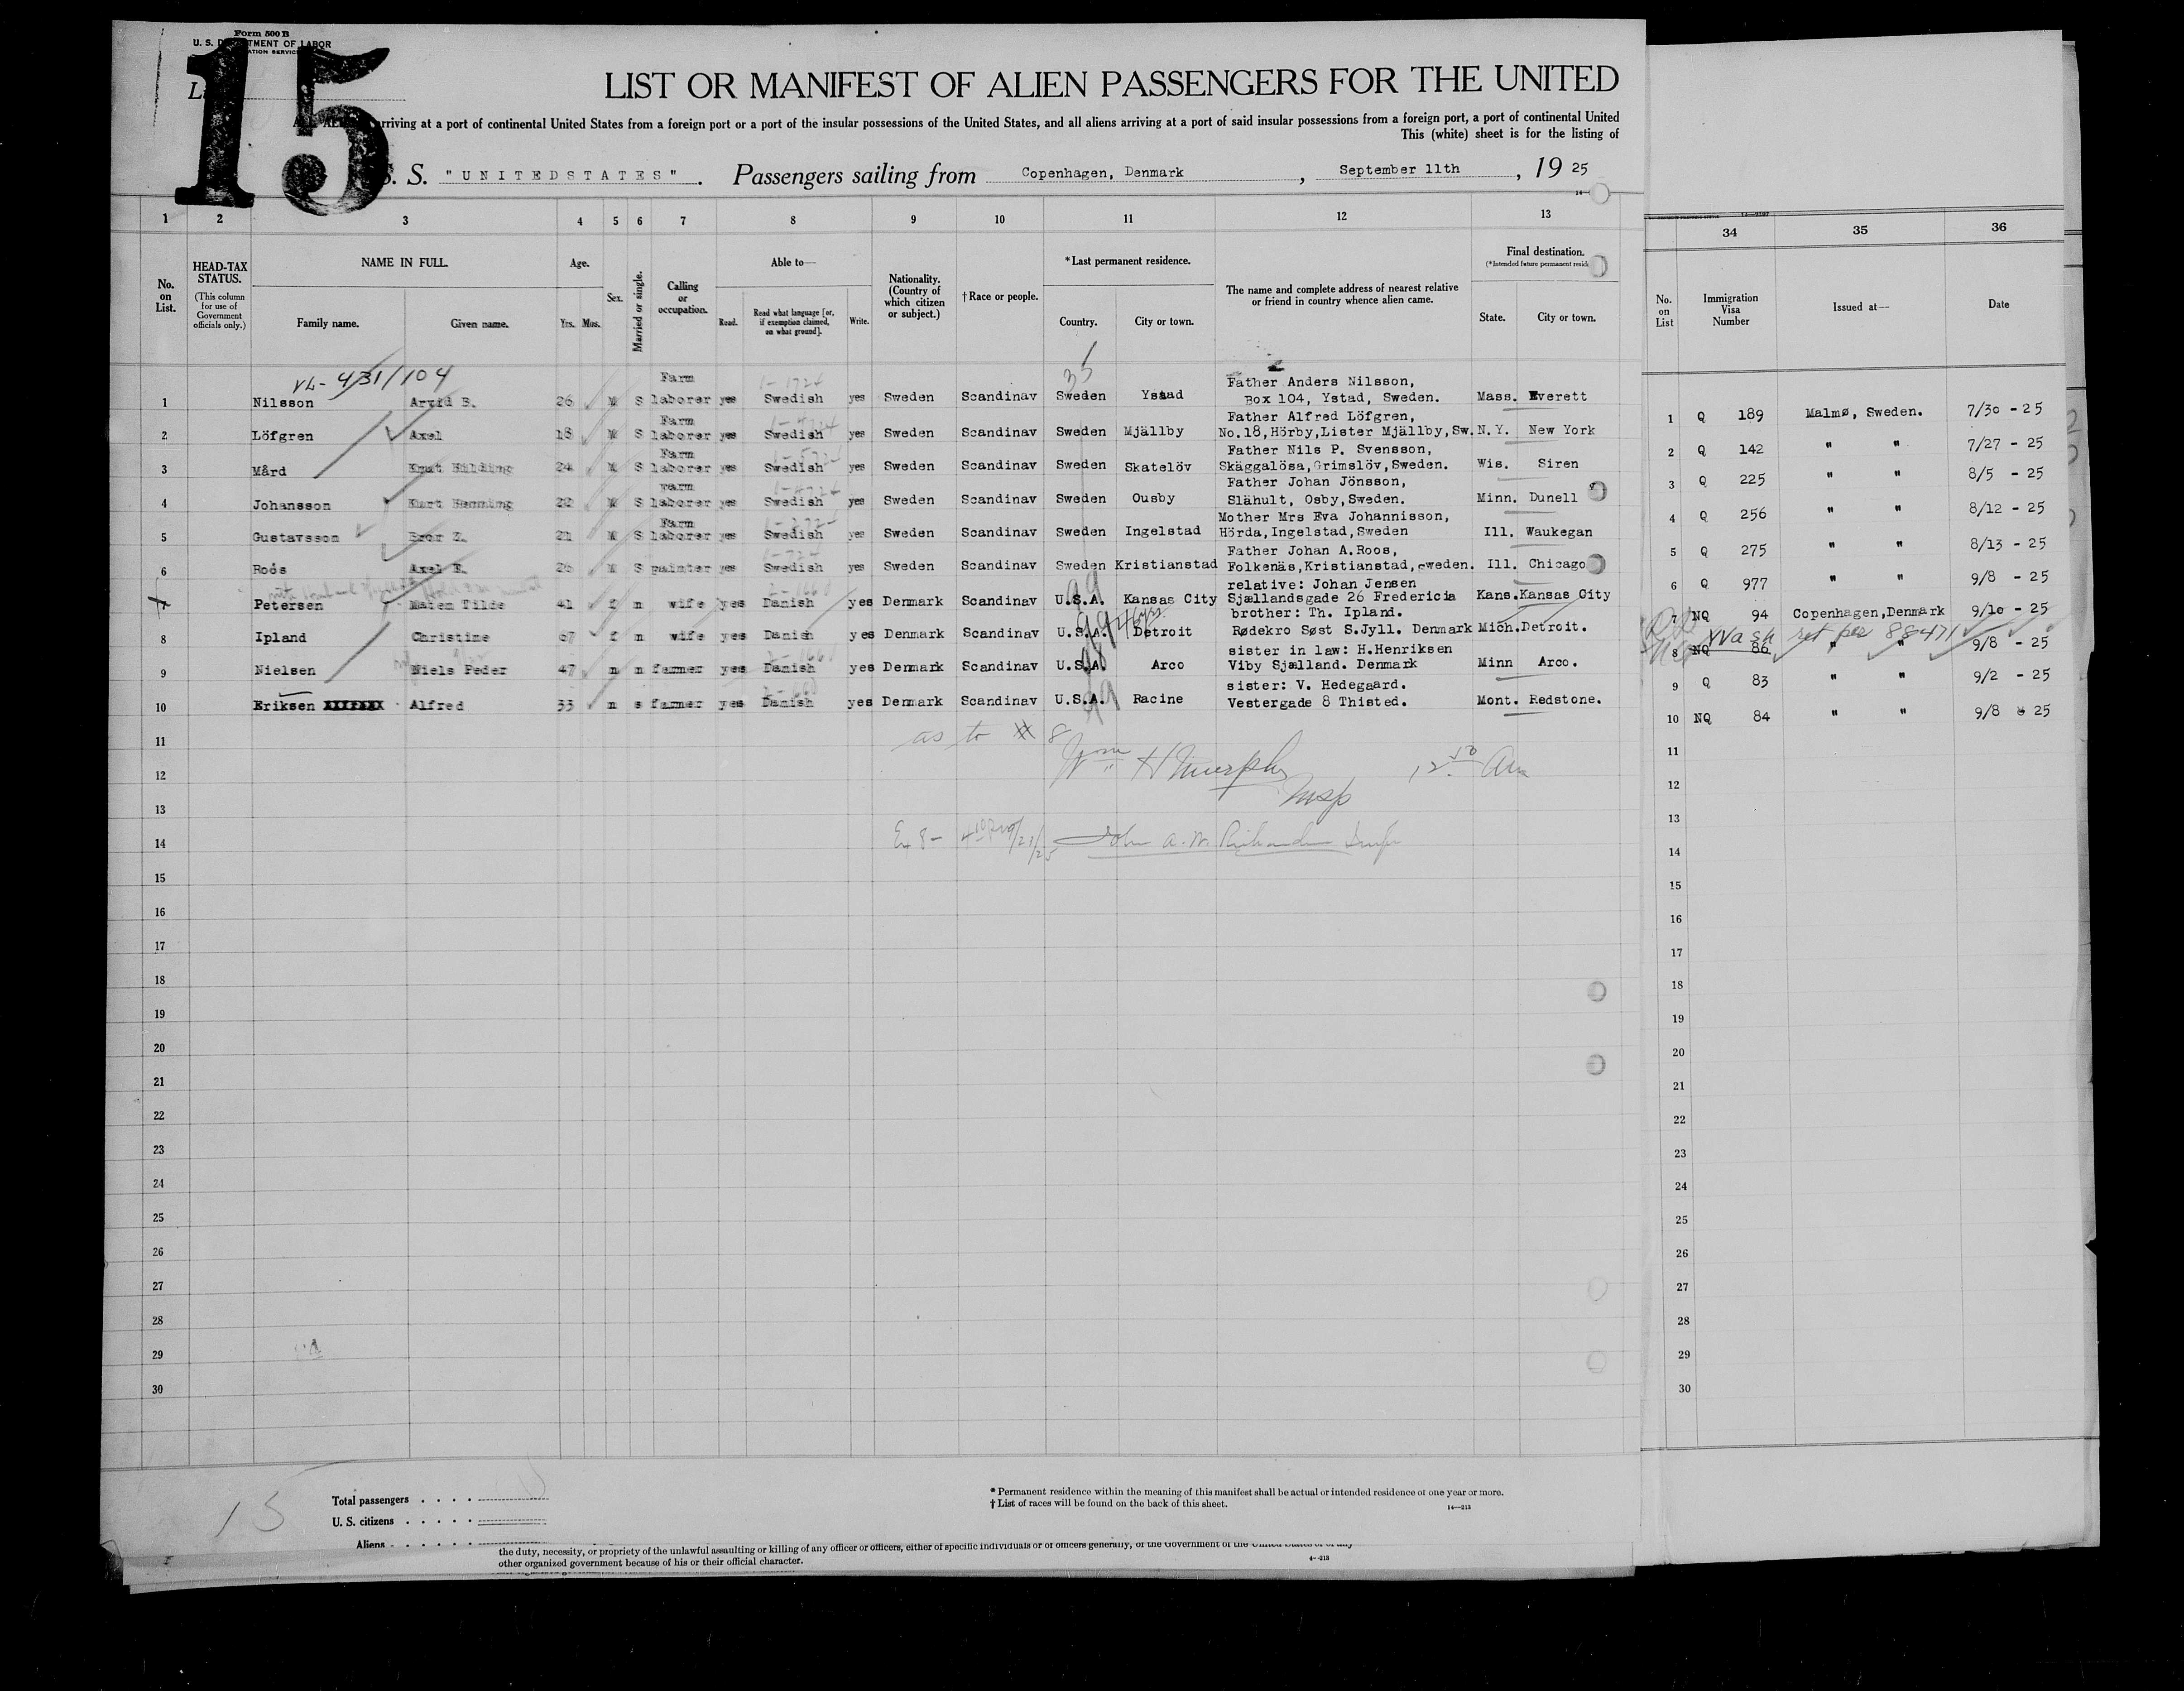 Form 500 B
U. S. DEPARTMENT OF LABOR
15
LIST OR MANIFEST OF ALIEN PASSENGERS FOR THE UNITED
arriving at a port of continental United States from a foreign port or a port of the insular possessions of the United States, and all aliens arriving at a port of said insular possessions from a foreign port, a port of continental United
This (white) sheet is for the listing of
S. S. "UNITEDSTATES". Passengers sailing from Copenhagen, Denmark, September 11th, 19 25
1 2 3 4 5 6 7 8 9 10 11 12 13 34 35 36
No. on List.
HEAD-TAX STATUS.
(This column for use of Government officials only.)
NAME IN FULL
Family name. Given name.
Age.
Yrs. Mos.
Sex.
Married or single.
Calling or occupation.
Able to—
Read.
Read what language [or, if exemption claimed, on what ground].
Write.
Nationality. (Country of which citizen or subject.)
† Race or people.
*Last permanent residence.
Country. City or town.
The name and complete address of nearest relative or friend in country whence alien came.
Final destination.
State. City or town.
No. on List
Immigration Visa Number
Issued at—
Date
431/104
1 Nilsson Arvid B. 26 M S Farm laborer yes Swedish yes Sweden Scandinav Sweden Ystad Father Anders Nilsson, Box 104, Ystad, Sweden. Mass. Everett 1 Q 189 Malmø, Sweden. 7/30 - 25
2 Löfgren Axel 18 M S Farm laborer yes Swedish yes Sweden Scandinav Sweden Mjällby Father Alfred Löfgren, No.18, Hörby, Lister Mjällby, Sw. N.Y. New York 2 Q 142 " " 7/27 - 25
3 Mård Knut Hilding 24 M S Farm laborer yes Swedish yes Sweden Scandinav Sweden Skatelöv Father Nils P. Svensson, Skäggalösa, Grimslöv, Sweden. Wis. Siren 3 Q 225 " " 8/5 - 25
4 Johansson Kurt Hemming 22 M S Farm laborer yes Swedish yes Sweden Scandinav Sweden Ousby Father Johan Jönsson, Slähult, Osby, Sweden. Minn. Dunell 4 Q 256 " " 8/12 - 25
5 Gustavsson Bror Z. 21 M S Farm laborer yes Swedish yes Sweden Scandinav Sweden Ingelstad Mother Mrs Eva Johannisson, Hörda, Ingelstad, Sweden Ill. Waukegan 5 Q 275 " " 8/13 - 25
6 Roos Axel E. 26 M S painter yes Swedish yes Sweden Scandinav Sweden Kristianstad Father Johan A. Roos, Folkenäs, Kristianstad, Sweden. Ill. Chicago 6 Q 977 " " 9/8 - 25
7 Petersen Maren Tilde 41 f m wife yes Danish yes Denmark Scandinav U.S.A. Kansas City relative: Johan Jensen Sjællandsgade 26 Fredericia Kans. Kansas City 7 NQ 94 Copenhagen, Denmark 9/10 - 25
8 Ipland Christine 67 f m wife yes Danish yes Denmark Scandinav U.S.A. Detroit brother: Th. Ipland. Rødekro Søst S.Jyll. Denmark Mich. Detroit. 8 NQ 86 " " 9/8 - 25
88471
9 Nielsen Niels Peder 47 m m farmer yes Danish yes Denmark Scandinav U.S.A. Arco sister in law: H.Henriksen Viby Sjælland. Denmark Minn Arco. 9 Q 83 " " 9/2 - 25
10 Eriksen Alfred 33 m s farmer yes Danish yes Denmark Scandinav U.S.A. Racine sister: V. Hedegaard. Vestergade 8 Thisted. Mont. Redstone. 10 NQ 84 " " 9/8 25
as to # 8
Wm H Murphy
Insp
11 11
12 12
13 13
14 John A. M. 14
15 15
16 16
17 17
18 18
19 19
20 20
21 21
22 22
23 23
24 24
25 25
26 26
27 27
28 28
29 29
30 30
15
Total passengers
U. S. citizens
Aliens
* Permanent residence within the meaning of this manifest shall be actual or intended residence of one year or more.
† List of races will be found on the back of this sheet.
14—213
the duty, necessity, or propriety of the unlawful assaulting or killing of any officer or officers, either of specific individuals or of officers generally, of the Government of the United States or of any
other organized government because of his or their official character.